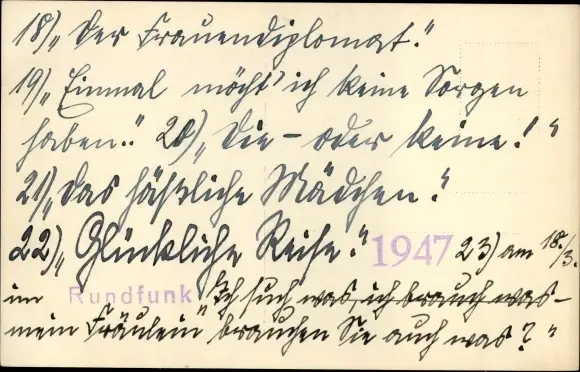 18) „Der Frauendiplomat."
19) „Einmal möcht' ich keine Sorgen
haben." 20) „Die – oder keine!"
21) „Das häßliche Mädchen."
22) „Glückliche Reise." 1947 23) am 18./3.
im Rundfunk „Ich such was, ich brauch was –
mein Fräulein brauchen Sie auch was?"